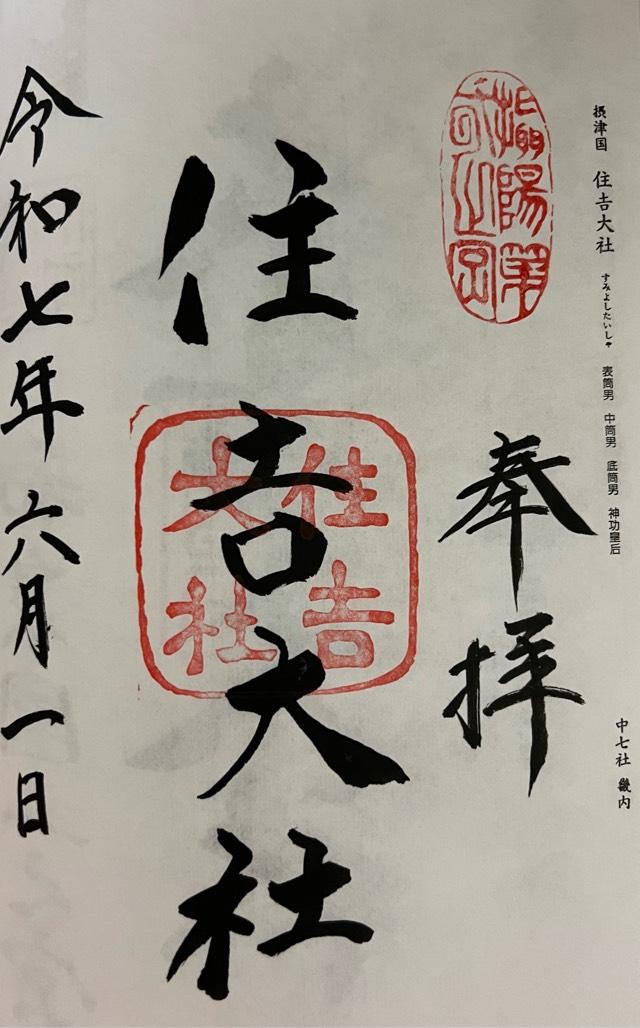 摂津国 住吉大社 すみよしたいしゃ 表筒男 中筒男 底筒男 神功皇后
中七社 畿内
奉拝
住吉大社
住吉
大社
令和七年六月一日